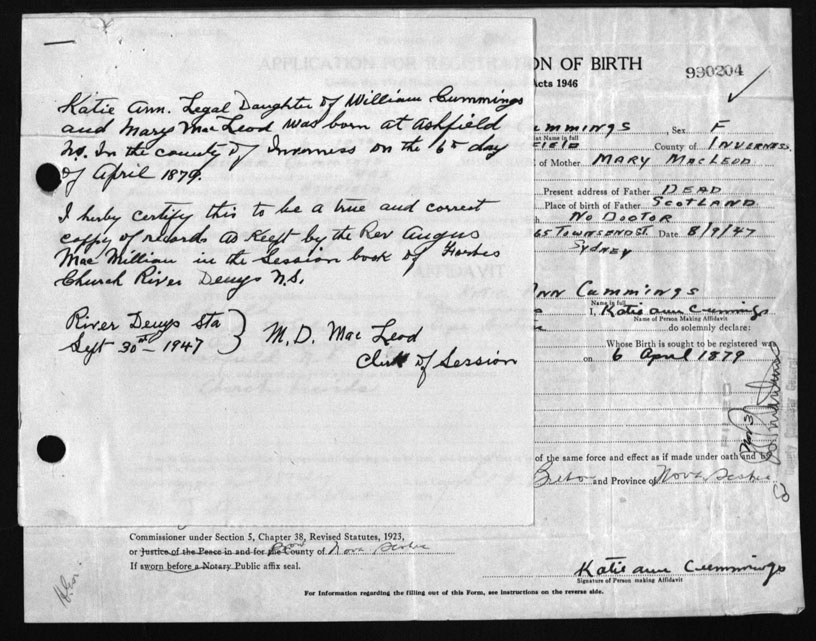 Katie Ann. Legal Daughter of William Cummings
and Mary MacLeod was born at Ashfield
NS. In the county of Inverness on the 6th day
of April 1879.
I herby certify this to be a true and correct
coppy of records as Keept by the Rev Angus
MacMillian in the Session book of Forbes
Church River Denys N.S.
River Denys Sta
Sept 30th - 1947
M. D. MacLeod
Clerk of Session
APPLICATION FOR REGISTRATION
ON OF BIRTH
Acts 1946
930204
ummings, Sex F
Name in full
FIELD County of INVERNESS
of Mother MARY MACLEOD
Present address of Father DEAD
Place of birth of Father SCOTLAND
NO DOCTOR
65 TOWNSEND ST. Date 8/9/47
SYDNEY
Ann Cummings
Name in full
I, Katie Ann Cummings
Name of Person Making Affidavit
do solemnly declare:
Whose Birth is sought to be registered was
on 6 April 1879
of the same force and effect as if made under oath and by
Breton and Province of Nova Scotia
Commissioner under Section 5, Chapter 38, Revised Statutes, 1923,
or Justice of the Peace in and for the County of Nova Scotia
If sworn before a Notary Public affix seal.
Katie Ann Cummings
Signature of Person making Affidavit
For Information regarding the filling out of this Form, see instructions on the reverse side.